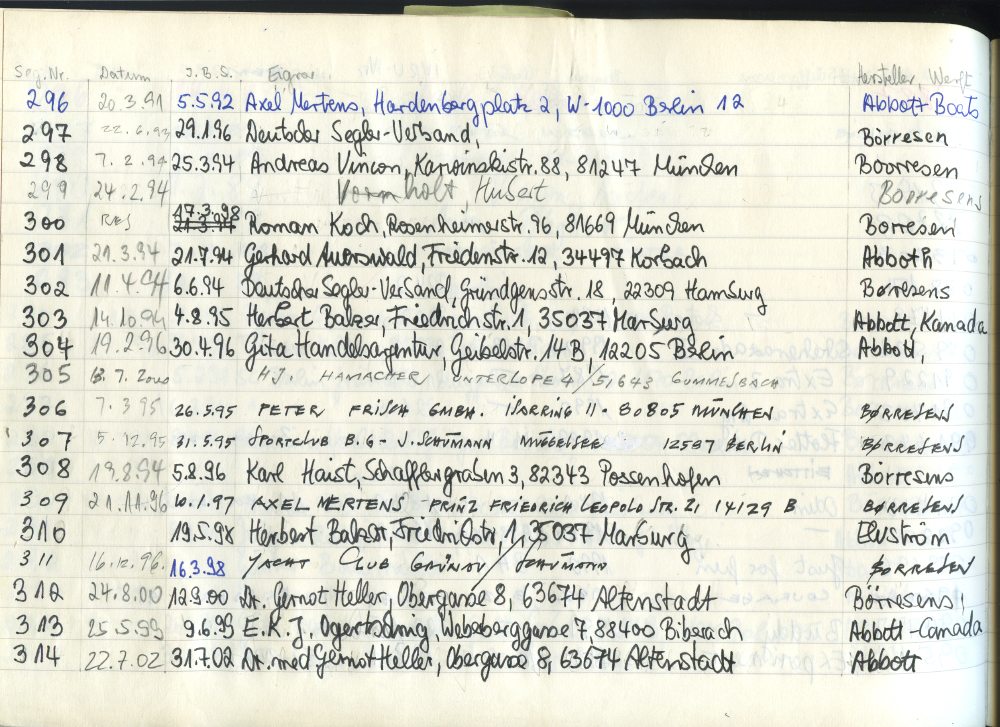 Seg.Nr. Datum J.B.S. Eigner Hersteller, Werft
296 20.3.91 5.5.92 Axel Mertens, Hardenbergplatz 2, W-1000 Berlin 12 Abbott-Boats
297 22.6.93 29.1.96 Deutscher Segler-Verband, Börresen
298 7.2.94 25.3.94 Andreas Vincon, Karwinskistr. 88, 81247 München Boorresen
299 24.2.94 Vormholt, Hubert Borresens
300 17.3.98 Roman Koch, Rosenheimerstr. 96, 81669 München Borresen
301 21.3.94 21.7.94 Gerhard Auerswald, Friedenstr. 12, 34497 Korbach Abboth
302 11.4.94 6.6.94 Deutscher Segler-Verband, Gründgensstr. 18, 22309 Hamburg Børresens
303 14.10.94 4.8.95 Herbert Balzer, Friedrichstr. 1, 35037 Marburg Abbott, Kanada
304 19.2.96 30.4.96 Gita Handelsagentur, Geibelstr. 14B, 12205 Berlin Abbott,
305 13.7.2000 HJ. HAMACHER UNTERLOPE 4 / 51643 GUMMESBACH
306 7.3.95 26.5.95 PETER FRISCH GMBH. ISARRING 11 - 80805 MÜNCHEN BØRRESENS
307 5.12.95 31.5.95 SPORTCLUB B.G - J. SCHÜMANN MÜGGELSEE 12587 BERLIN BØRRESENS
308 19.8.94 5.8.96 Karl Haist, Schaffbergraben 3, 82343 Possenhofen Börresens
309 21.11.96 10.1.97 AXEL MERTENS - PRINZ FRIEDRICH LEOPOLD STR. 21 14129 B BØRRESENS
310 19.5.98 Herbert Balzer, Friedrichstr, 1, 35037 Marburg Elvström
311 16.12.96. 16.3.98 YACHT CLUB GRÜNAU / SCHÜMANN BORRESEN
312 24.8.00 12.9.00 Dr. Gernot Heller, Obergasse 8, 63674 Altenstadt Börresens,
313 25.5.99 9.6.99 E.K.J. Webeberggasse 7, 88400 Biberach Abbott-Canada
314 22.7.02 31.7.02 Dr. med Gernot Heller, Obergasse 8, 63674 Altenstadt Abbott